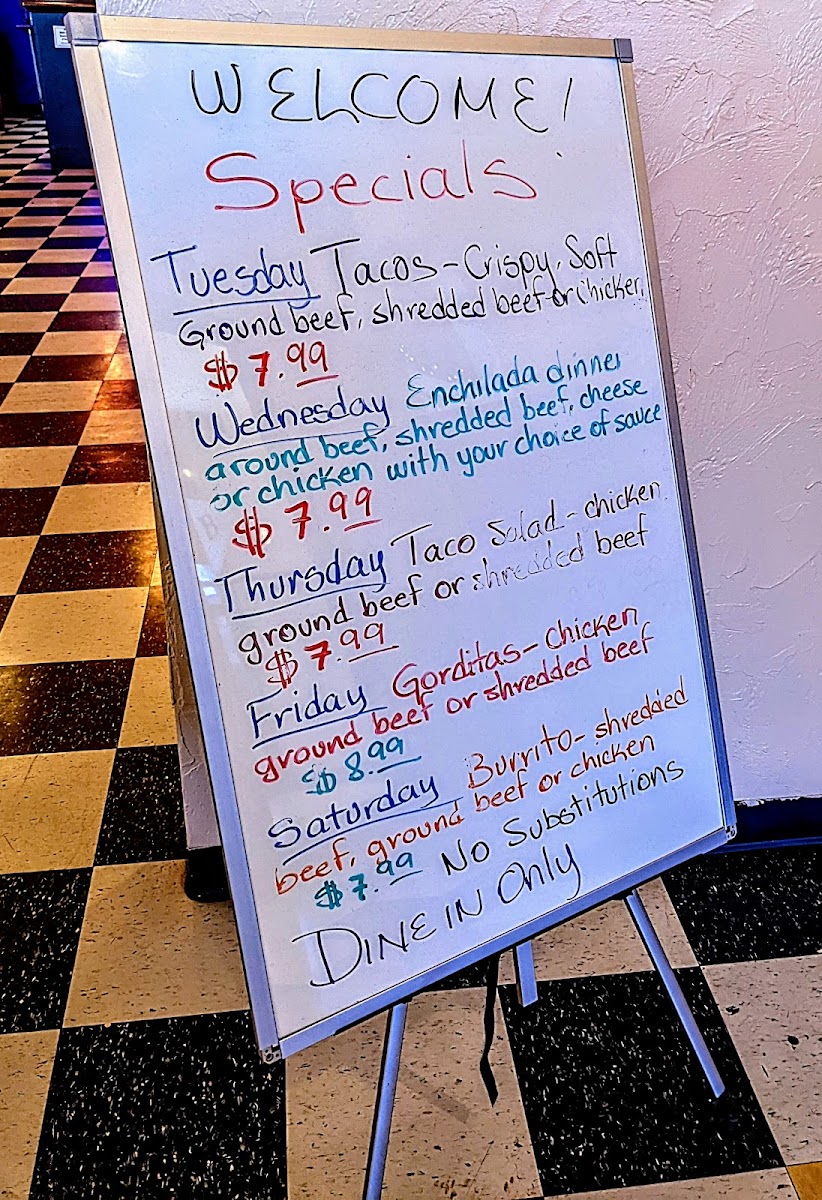 WELCOME!
Specials
Tuesday Tacos - Crispy, Soft
Ground beef, shredded beef or Chicken
$7.99
Wednesday Enchilada dinner
around beef, shredded beef, cheese
or chicken with your choice of sauce
$7.99
Thursday Taco Salad - chicken
ground beef or shredded beef
$7.99
Friday Gorditas - Chicken
ground beef or shredded beef
$8.99
Saturday Burrito - shredded
beef, ground beef or chicken
$7.99 No Substitutions
DINE IN Only